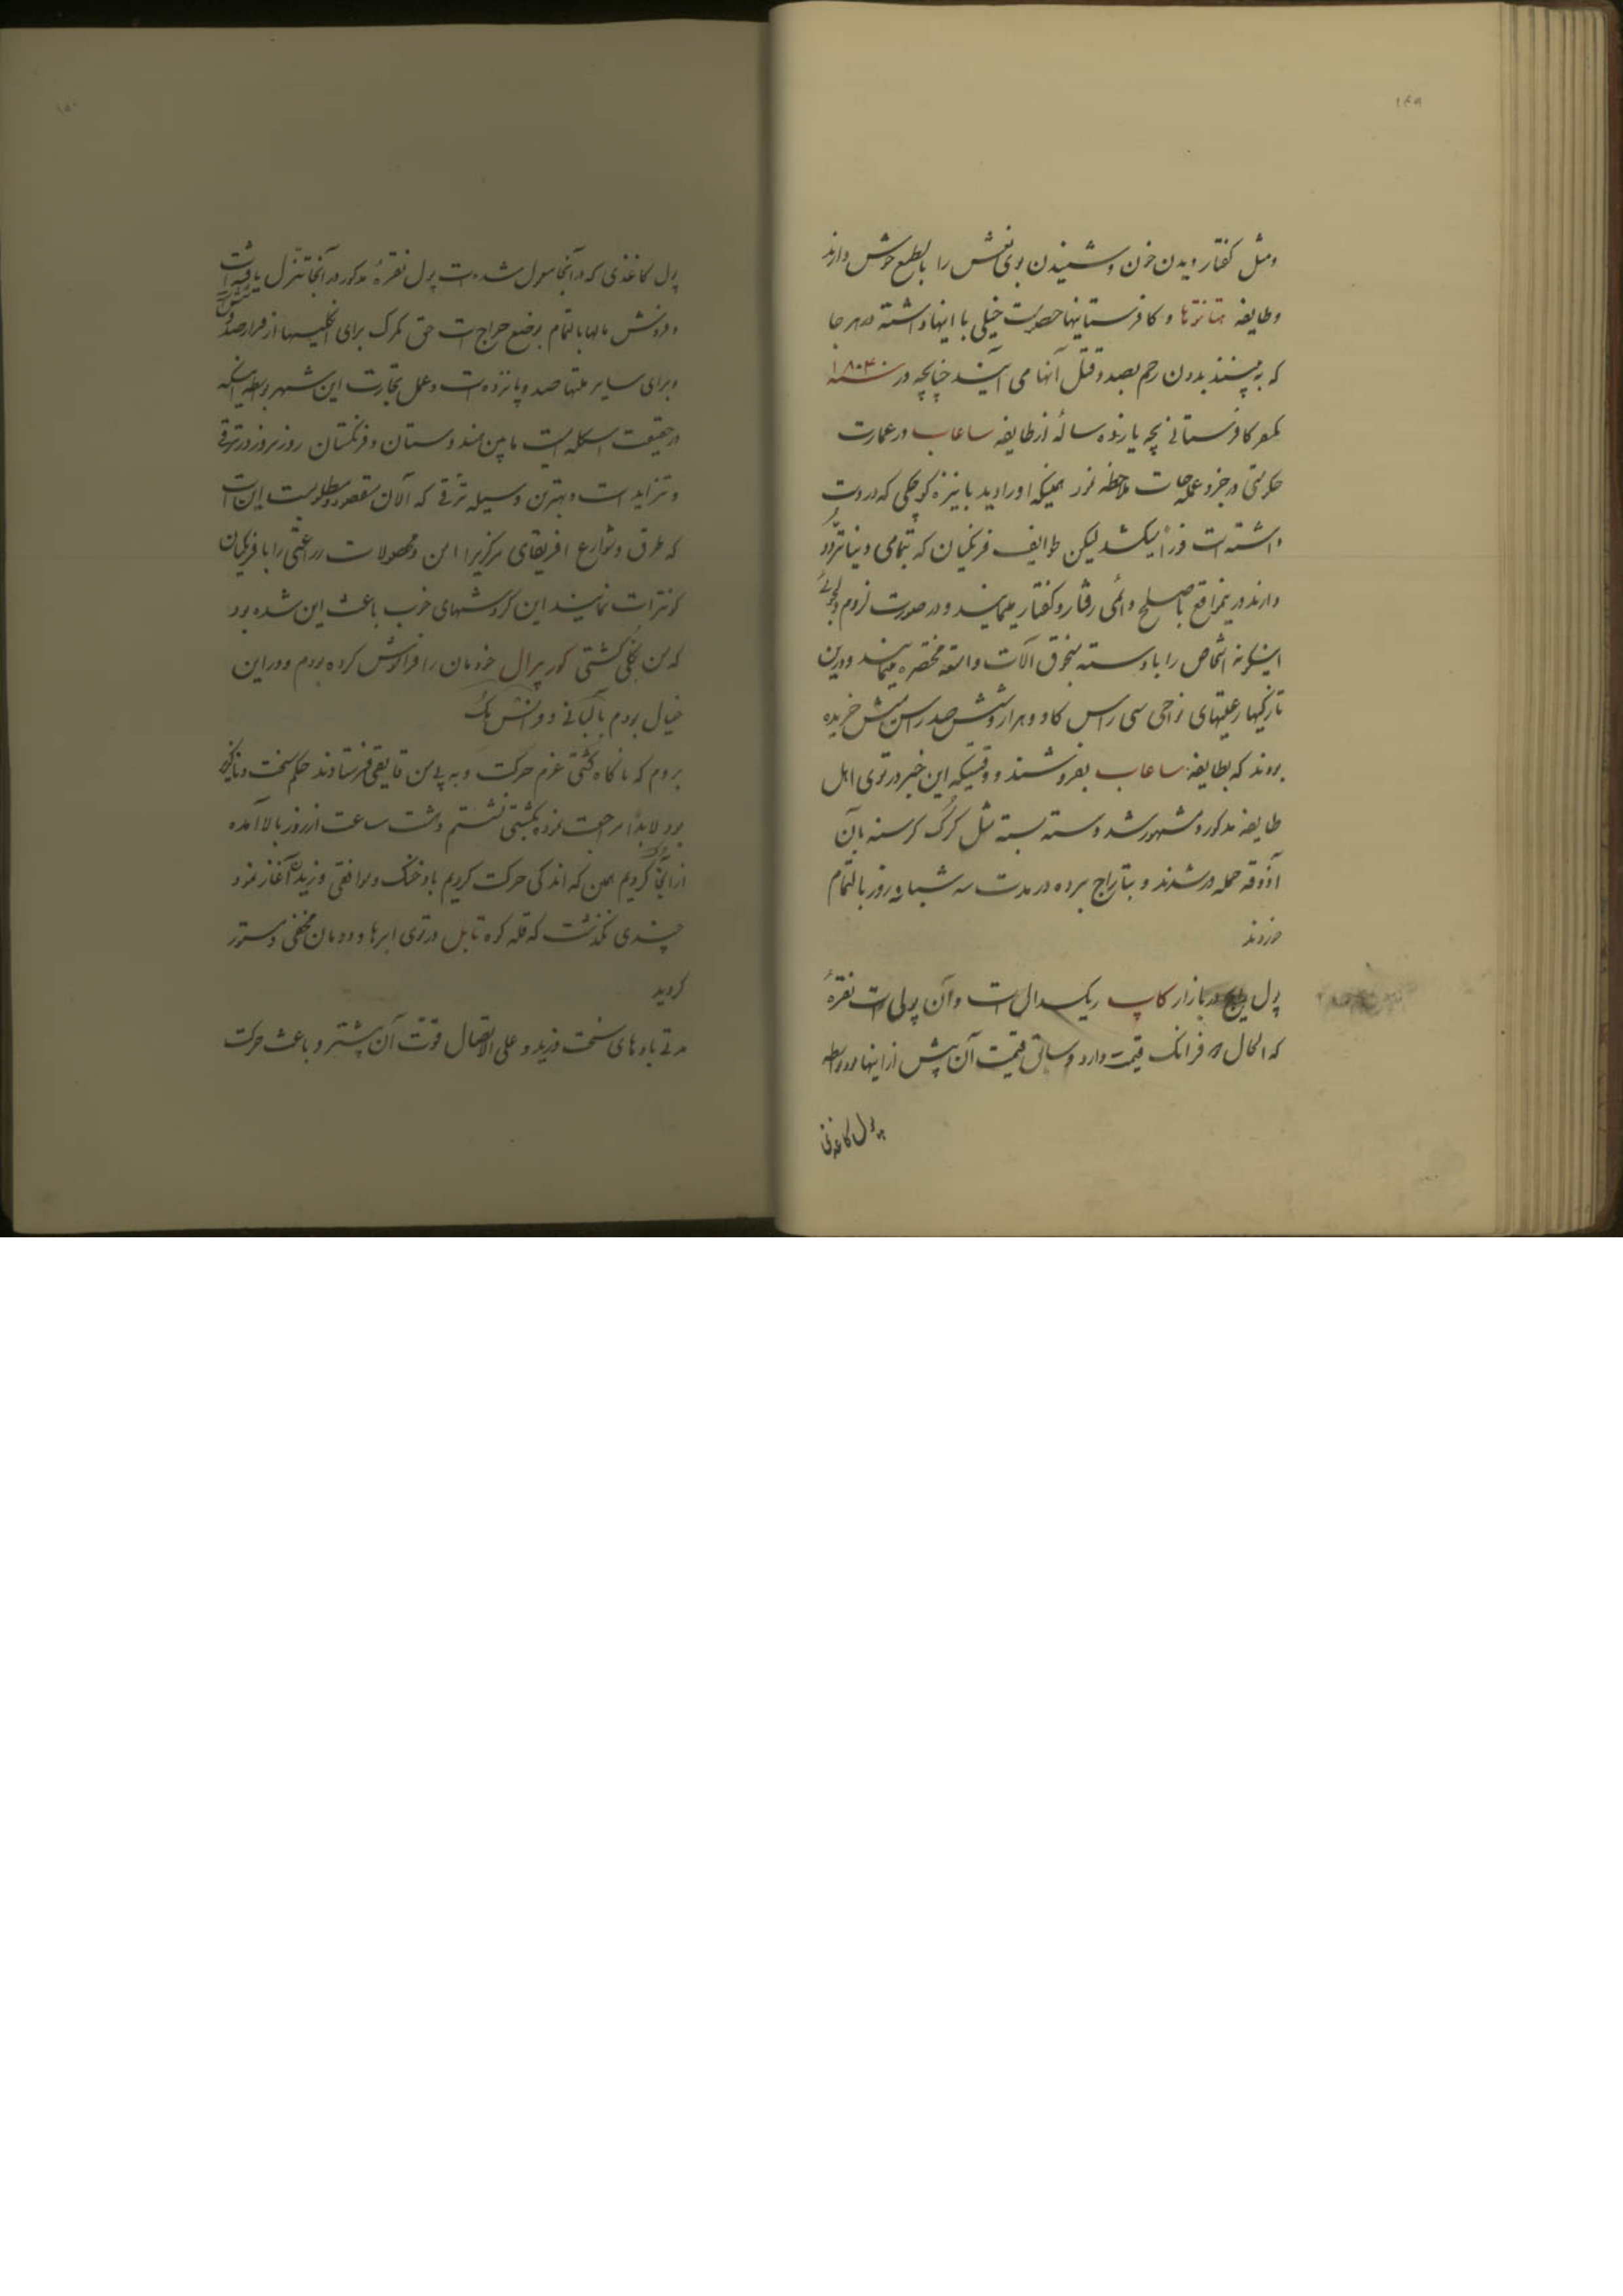 ۱۴۹
ومثل کفتار دیدن خون و شنیدن بوی نعش را بالطبع خوش دارند
وطایفه هتانتها و کافرستانیها خصومت خیلی با اینها داشته در هر جا
که به بینند بدون رحم بصدد قتل آنها می آیند چنانچه در سنه ۱۸۰۴
یکنفر کافرستانی بچه یازده ساله از طایفه ساعاب در عمارت
حکومتی در جزو عمله جات ملاحظه نمود همینکه او را دید با نیزه کوچکی که در دست
داشته است فوراً میکشد لیکن طوایف فرنگیان که بتمامی دنیا تردد
دارند در اینمواقع با صلح دائمی رفتار و گفتار مینمایند و در صورت لزوم دلجوئی
اینگونه اشخاص را با دسته بنجوق آلات و امتعه مختصره مینمایند و درین
تازگیها رعیتهای نواحی سی راس کاو و هزار و شش صد راس میش خریده
بودند که بطایفه ساعاب بفروشند و وقتیکه این خبر در توی اهل
طایفه مذکور و مشهور شد دسته بسته مثل گرک کرسنه بآن
آذوقه حمله ور شدند و بتاراج برده در مدت سه شبانه روز بالتمام
خوردند
پول رایج در بازار کاپ ریکسدال است و آن پولی است نقرهٔ
که الحال ۵ فرانک قیمت دارد و سابق قیمت آن بیش از اینها بود بواسطه
پول کاغذی
۱۵۰
پول کاغذی که در آنجا معمول شده است پول نقرهٔ مذکور در آنجا تنزل یافته است
و فروش مالها بالتمام بوضع حراج است حق کمرک برای انکلیسها از قرار صد
وبرای سایر ملتها صد و پانزده است و عمل تجارت این شهر بواسطه اینکه
در حقیقت اسکله ایست مابین هندوستان و فرنکستان روز بروز در ترقی
و تزاید است و بهترین وسیله ترقی که الان مقصود و مطلوبست این است
که طرق و شوارع افریقای مرکزیرا امن و محصولات زراعتی را با فرنکیان
کونترات نمایند این کردشهای خوب باعث این شده بود
که من بکلی کشتی کورپرال خودمان را فراموش کرده بودم و در این
خیال بودم
بودم که ناگاه کشتی عزم حرکت و به پی من قایقی فرستادند حکم سخت و ناگزیر
بود لابداً مراجعت نموده بکشتی نشستم و هشت ساعت از روز بالا آمده
از آنجا کردیم همین که اندکی حرکت کردیم باد خنک و موافقی وزیدن آغاز نمود
چندی نکذشت که قله کوه تابل در توی ابرها و دودمان مخفی و مستور
کردید
مدتی بادهای سخت وزید و علی الاتصال قوت آن بیشتر و باعث حرکت